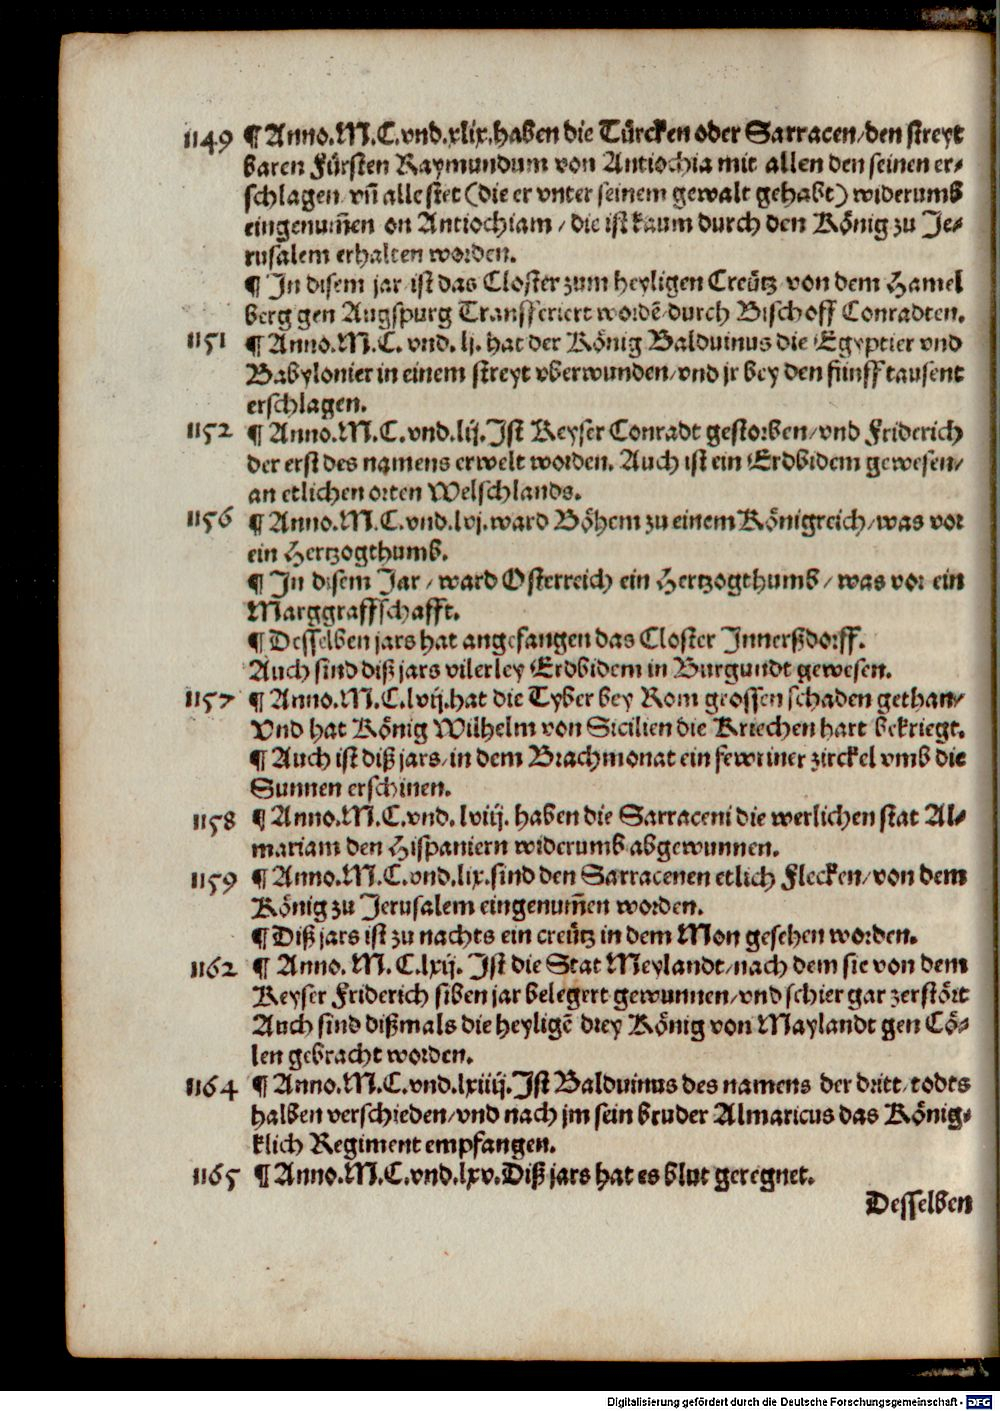 1149 ¶ Anno.M.C.vnd.xlix.haben die Türcken oder Sarracen/den streyt
baren Fürsten Raymundum von Antiochia mit allen den seinen er-
schlagen/vñ alle stet (die er vnter seinem gewalt gehabt) widerumb
eingenum̃en on Antiochiam / die ist kaum durch den König zu Je-
rusalem erhalten worden.
¶ In disem jar/ist das Closter zum heyligen Creütz/von dem Hamel
berg gen Augspurg Transferiert wordẽ/durch Bischoff Conradten.
1151 ¶ Anno.M.C. vnd. lj. hat der König Balduinus die Egyptier vnd
Babylonier in einem streyt vberwunden/vnd jr bey den fünff tausent
erschlagen.
1152 ¶ Anno.M.C.vnd.lij.Ist Keyser Conradt gestorben/vnd Friderich
der erst des namens erwelt worden. Auch ist ein Erdbidem gewesen/
an etlichen orten Welschlands.
1156 ¶ Anno.M.C.vnd.lvj.ward Böhem zu einem Königreich/was vor
ein Hertzogthumb.
¶ In disem Jar / ward Osterreich ein Hertzogthumb / was vor ein
Marggraffschafft.
¶ Desselben jars hat angefangen das Closter Innerßdorff.
Auch sind diß jars vilerley Erdbidem in Burgundt gewesen.
1157 ¶ Anno.M.C.lvij.hat die Tyber bey Rom grossen schaden gethan/
Vnd hat König Wilhelm von Sicilien die Kriechen hart bekriegt.
¶ Auch ist diß jars/in dem Brachmonat ein fewriner zirckel vmb die
Sunnen erschinen.
1158 ¶ Anno.M.C.vnd. lviij. haben die Sarraceni die werlichen stat Al-
mariam den Hispaniern widerumb abgewunnen.
1159 ¶ Anno.M.C.vnd.lix.sind den Sarracenen etlich Flecken/von dem
König zu Jerusalem eingenum̃en worden.
¶ Diß jars ist zu nachts ein creütz in dem Mon gesehen worden.
1162 ¶ Anno. M. C.lxij. Ist die Stat Meylandt/nach dem sie von dem
Keyser Friderich siben jar belegert gewunnen/vnd schier gar zerstört
Auch sind dißmals die heyligẽ drey König von Maylandt gen Cö-
len gebracht worden.
1164 ¶ Anno.M.C.vnd.lxiiij.Ist Balduinus des namens der dritt/todts
halben verschieden/vnd nach jm sein bruder Almaricus das König-
klich Regiment empfangen.
1165 ¶ Anno.M.C.vnd.lxv.Diß jars hat es blut geregnet.
Desselben
Digitalisierung gefördert durch die Deutsche Forschungsgemeinschaft - DFG